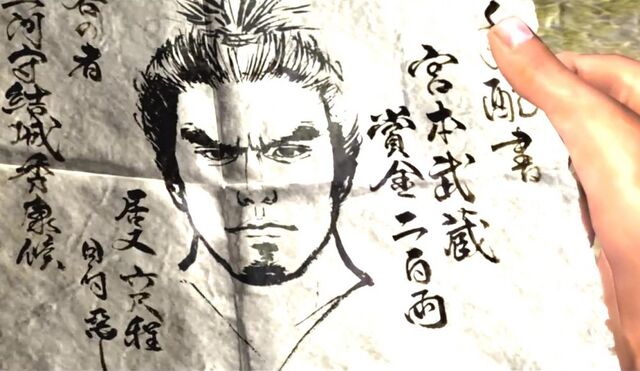 配書
宮本武蔵
賞金二百両
居丈 六尺程
目付 悪し
の者
河守結城秀康候